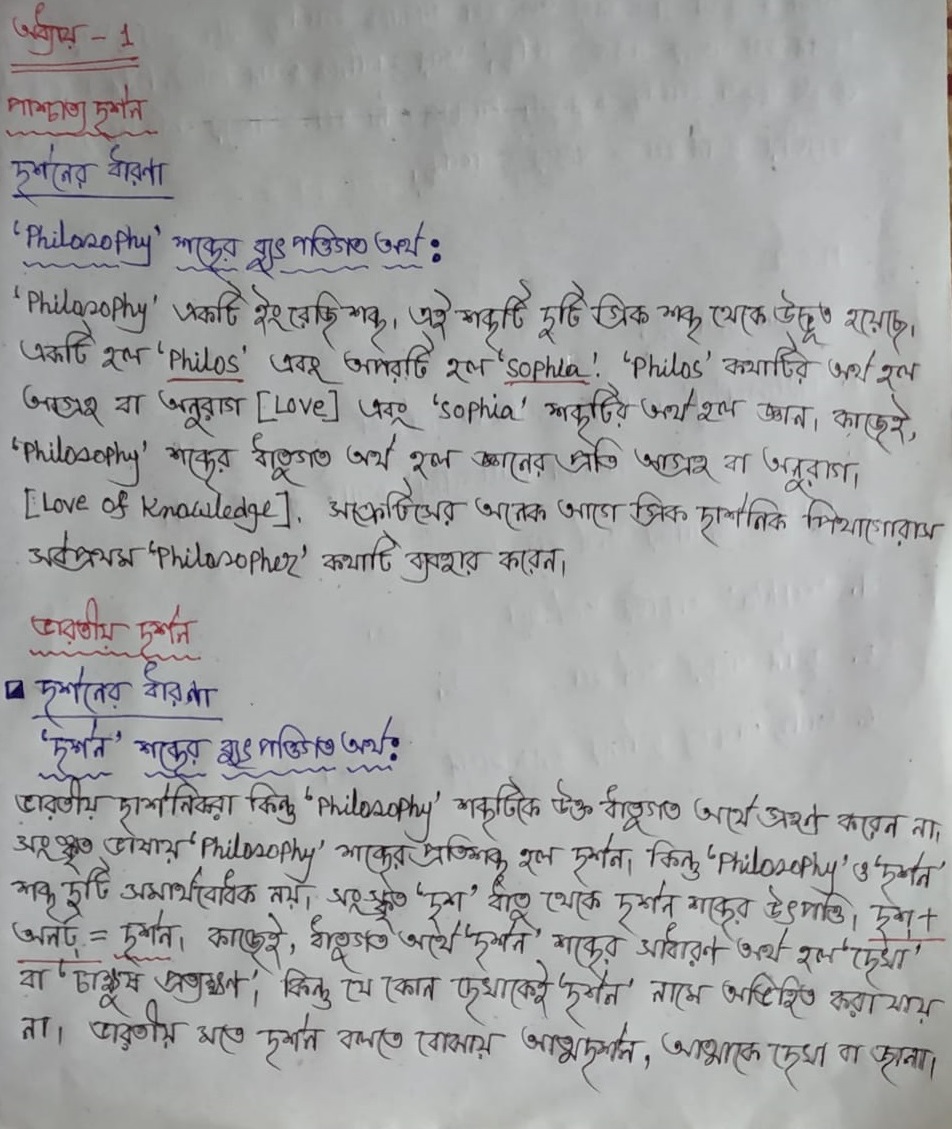 অধ্যায় - 1
পাশ্চাত্য দর্শন
দর্শনের ধারণা
'Philosophy' শব্দের ব্যুৎপত্তিগত অর্থ:
'Philosophy' একটি ইংরেজি শব্দ, এই শব্দটি দুটি গ্রিক শব্দ থেকে উদ্ভূত হয়েছে,
একটি হল 'Philos' এবং অপরটি হল 'Sophia'. 'Philos' কথাটির অর্থ হল
আগ্রহ বা অনুরাগ [Love] এবং 'Sophia' শব্দটির অর্থ হল জ্ঞান, কাজেই,
'Philosophy' শব্দের ধাতুগত অর্থ হল জ্ঞানের প্রতি আগ্রহ বা অনুরাগ,
[Love of Knowledge], সক্রেটিসের অনেক আগে গ্রিক দার্শনিক পিথাগোরাস
সর্বপ্রথম 'Philosopher' কথাটি ব্যবহার করেন।
ভারতীয় দর্শন
দর্শনের ধারণা
'দর্শন' শব্দের ব্যুৎপত্তিগত অর্থ:
ভারতীয় দার্শনিকরা কিন্তু 'Philosophy' শব্দটিকে উক্ত ধাতুগত অর্থে গ্রহণ করেন না,
সংস্কৃত ভাষায় 'Philosophy' শব্দের প্রতিশব্দ হল দর্শন, কিন্তু 'Philosophy' ও 'দর্শন'
শব্দ দুটি সমার্থবোধক নয়, সংস্কৃত 'দৃশ' ধাতু থেকে দর্শন শব্দের উৎপত্তি, দৃশ +
অনট্ = দর্শন, কাজেই, ধাতুগত অর্থে 'দর্শন' শব্দের সাধারণ অর্থ হল 'দেখা'
বা 'চাক্ষুষ প্রত্যক্ষণ', কিন্তু যে কোন দেখাকেই 'দর্শন' নামে অভিহিত করা যায়
না। ভারতীয় মতে দর্শন বলতে বোঝায় আত্মদর্শন, আত্মাকে দেখা বা জানা।